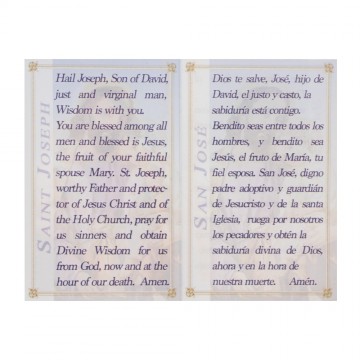 SAINT JOSEPH
Hail Joseph, Son of David,
just and virginal man,
Wisdom is with you.
You are blessed among all
men and blessed is Jesus,
the fruit of your faithful
spouse Mary. St. Joseph,
worthy Father and protec-
tor of Jesus Christ and of
the Holy Church, pray for
us sinners and obtain
Divine Wisdom for us
from God, now and at the
hour of our death. Amen.
SAN JOSÉ
Dios te salve, José, hijo de
David, el justo y casto, la
sabiduría está contigo.
Bendito seas entre todos los
hombres, y bendito sea
Jesús, el fruto de María, tu
fiel esposa. San José, digno
padre adoptivo y guardián
de Jesucristo y de la santa
Iglesia, ruega por nosotros
los pecadores y obtén la
sabiduría divina de Dios,
ahora y en la hora de
nuestra muerte. Amén.